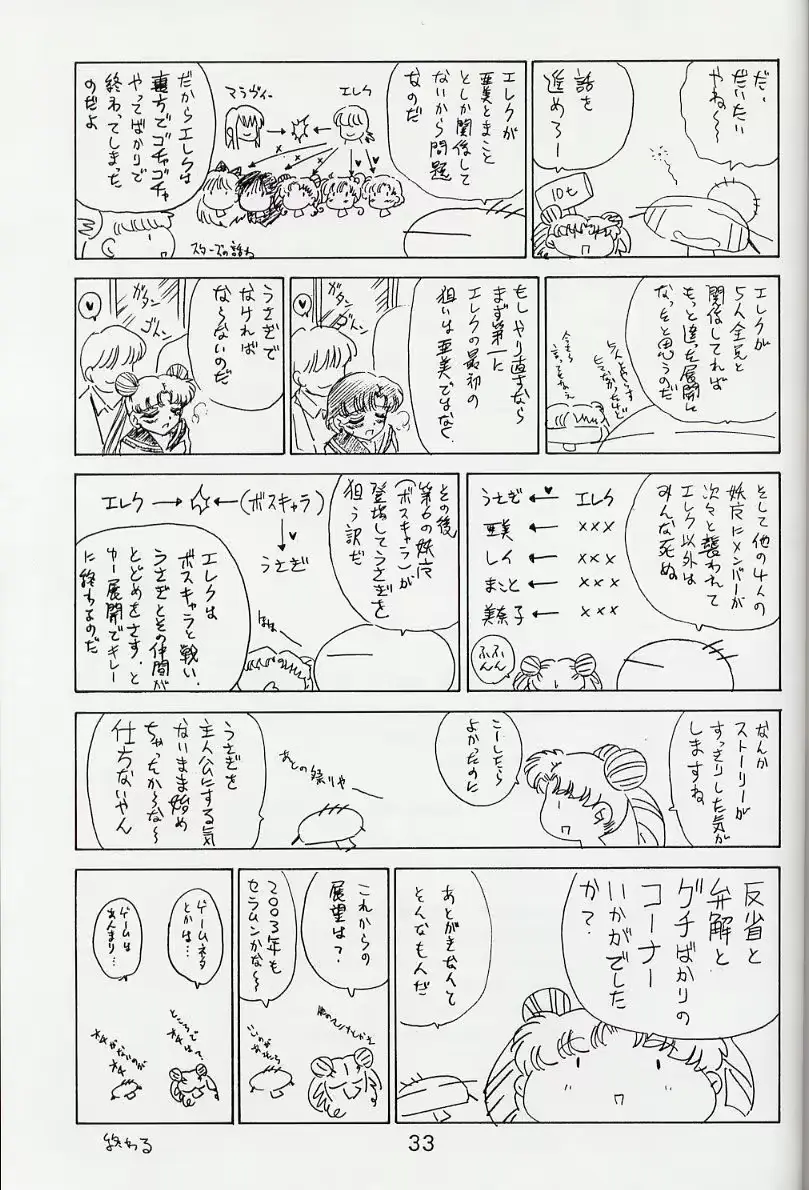 だ、
だいたい
やね～～
話を
進めろー
10t
エレクが
亜美とまこと
としか関係して
ないから問題
なのだ
エレク
マラヴィー
スターズの話ね
だからエレクは
裏方でゴチャゴチャ
やってばかりで
終わってしまった
のだよ
エレクが
5人全員と
関係してれば
もっと違った展開に
なったと思うのだ
もしやり直すなら
まず第一に
エレクの最初の
狙いは亜美ではなく、
ガタン
ゴトン
うさぎで
なければ
ならないのだ
ガタン
ゴトン
そして他の4人の
妖魔にメンバーが
次々と襲われて
エレク以外は
みんな死ぬ
うさぎ ← エレク
亜美 ← ×××
レイ ← ×××
まこと ← ×××
美奈子 ← ×××
ふふーん
その後
第6の妖魔
(ボスキャラ)が
登場してうさぎを
狙う訳だ
エレク → ☆ ← (ボスキャラ)
↓
うさぎ
ほほー
エレクは
ボスキャラと戦い、
うさぎとその仲間が
とどめをさす、と
ゆー展開でキレー
に終わるのだ
なんか
ストーリーが
すっきりした気が
しますね
こーしたら
よかったのに
あとの祭りや
うさぎを
主人公にする気
ないまま始め
ちゃったからな～
仕方ないやん
反省と
弁解と
グチばかりの
コーナー
いかがでした
か？
あとがきなんて
そんなもんだ
これからの
展望は？
2003年も
セラムンかな～～
ゲームネタ
とかは…
ゲームは
あんまり…
ところで
オチは？
オチがないのが
オチ
終わる
33